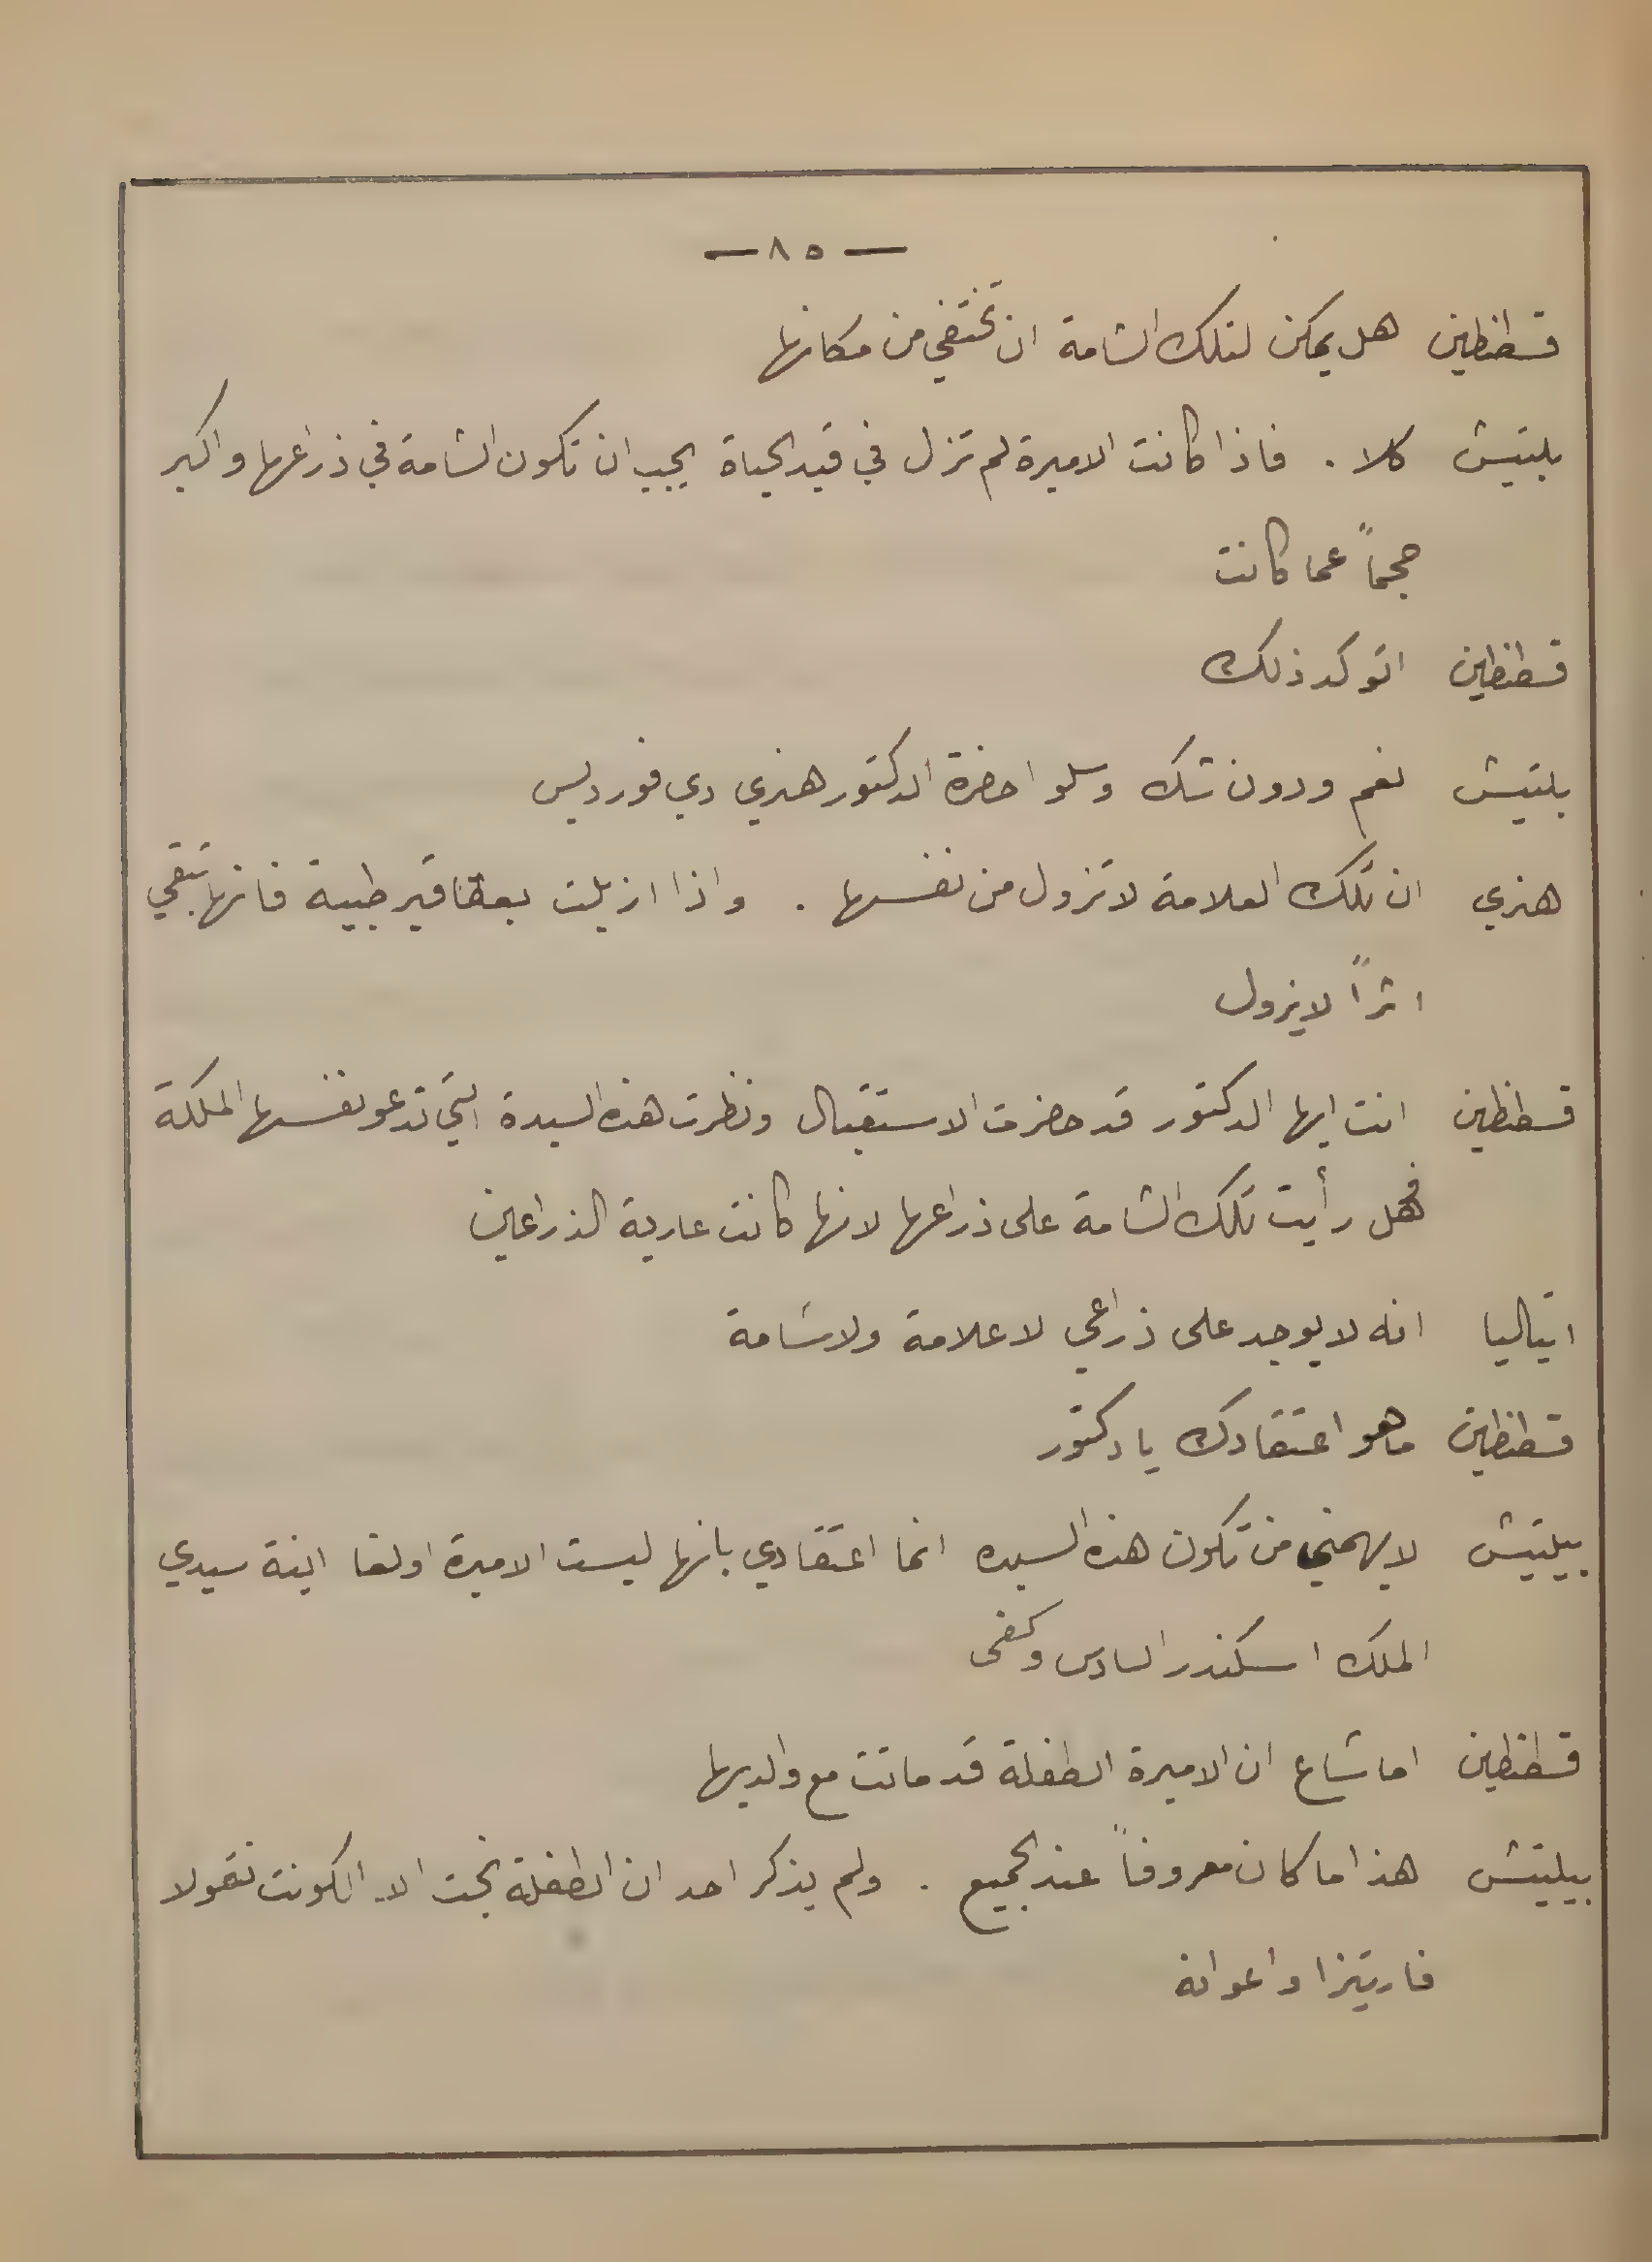 — ٨٥ —
قسطنطين هل يمكن لتلك الشامة ان تختفي من مكانها
بلتيش كلا . فاذا كانت الاميرة لم تزل في قيد الحياة يجب ان تكون الشامة في ذراعها واكبر
حجماً عما كانت
قسطنطين اتوكد ذلك
بلتيش نعم ودون شك وسلوا حضرة الدكتور هنري دي فورديس
هنري ان تلك العلامة لا تزول من نفسها . واذا ازيلت بعقاقير طبية فانها تبقي
اثراً لا يزول
قسطنطين انت ايها الدكتور قد حضرت الاستقبال ونظرت هذه السيدة التي تدعو نفسها الملكة
فهل رأيت تلك الشامة على ذراعها لانها كانت عارية الذراعين
اتياليا انه لا يوجد على ذراعي لا علامة ولا شامة
قسطنطين ما هو اعتقادك يا دكتور
بيليتش لا يهمني من تكون هذه السيده انما اعتقادي بانها ليست الاميرة اولغا ابنة سيدي
الملك اسكندر السادس وكفى
قسطنطين اما شاع ان الاميرة الطفلة قد ماتت مع والديها
بيليتش هذا ما كان معروفاً عند الجميع . ولم يذكر احد ان الطفلة نجت الا الكونت نقولا
فاريتزا واعوانه